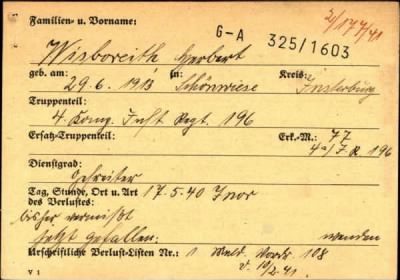 Familien- u. Vorname: 2/177/41
G-A 325/1603
Wisboreith Herbert
geb. am: in: Kreis:
29.6.1913 Schönwiese Insterburg
Truppenteil:
4. Komp. Inft. Regt. 196
Ersatz-Truppenteil: Erk.-M.: 77
4./J.R. 196
Dienstgrad:
Gefreiter
Tag, Stunde, Ort u. Art 17.5.40 Inor
des Verlustes:
bisher vermißt
jetzt gefallen. wenden
Urschriftliche Verlust-Listen Nr.: 1 108
v. 10/2.41.
V 1